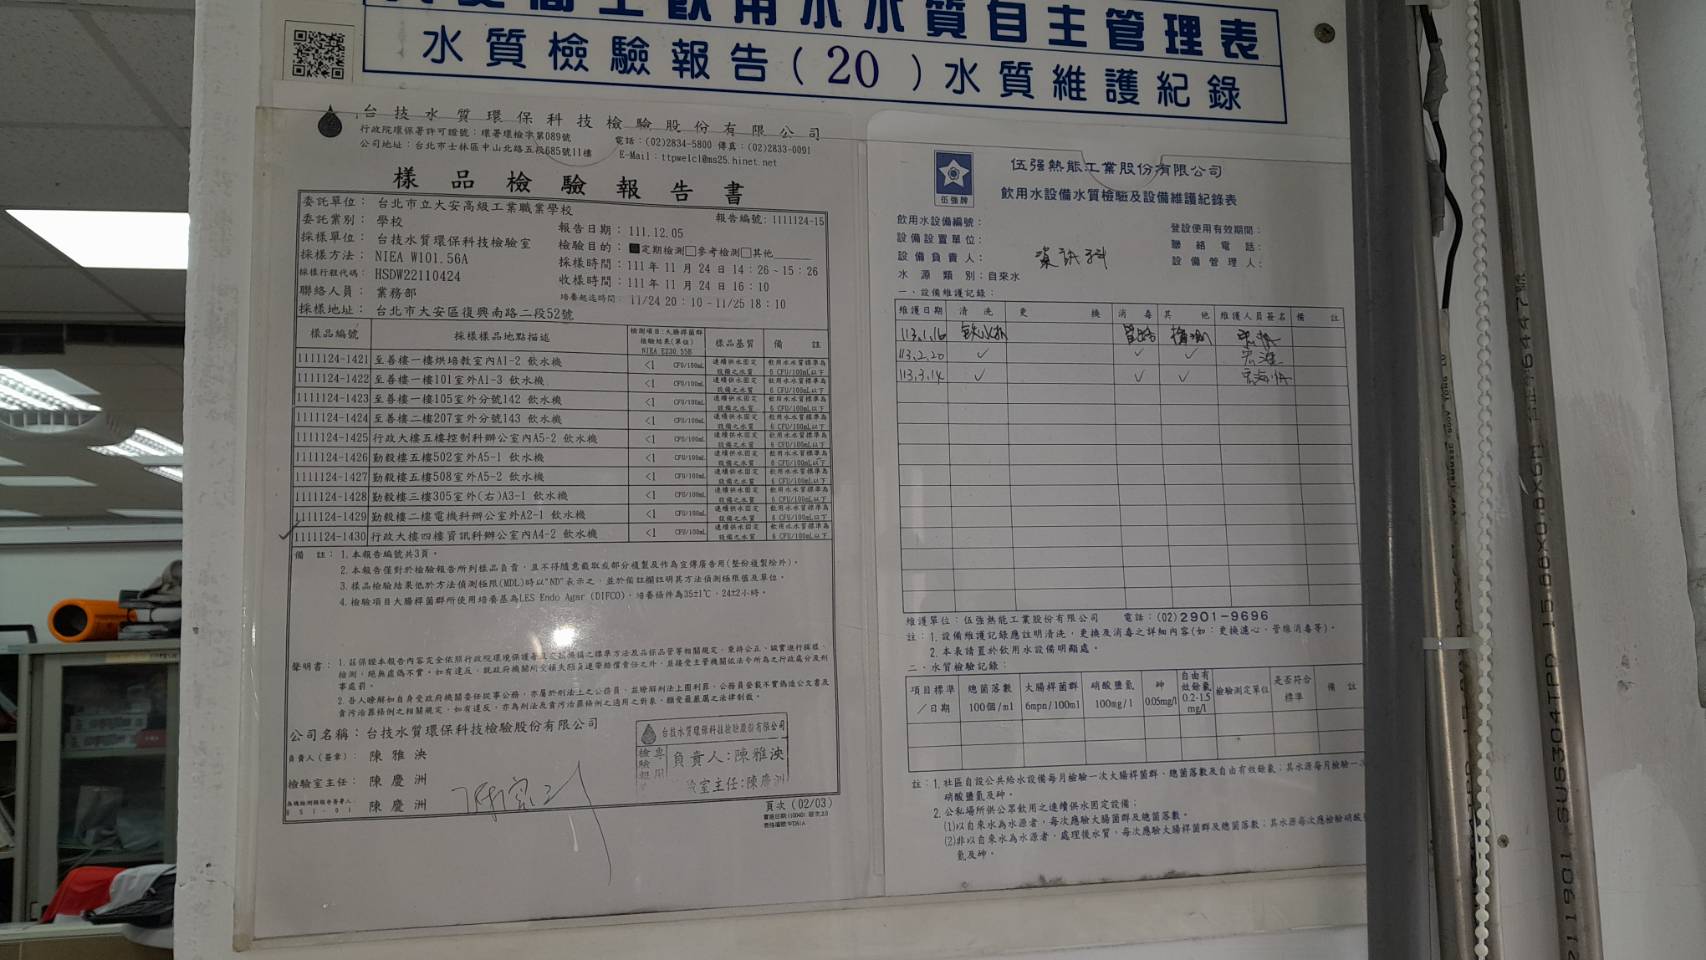 衛生飲用水水質自主管理表
水質檢驗報告(20)水質維護紀錄
台技水質環保科技檢驗股份有限公司
行政院環保署許可證號：環署環檢字第089號
電話：(02)2834-5800 傳真：(02)2833-0091
公司地址：台北市士林區中山北路五段685號11樓
E-Mail：ttpwelcl@ms25.hinet.net
樣品檢驗報告書
委託單位：台北市立大安高級工業職業學校
報告編號：1111124-15
委託業別：學校
報告日期：111.12.05
採樣單位：台技水質環保科技檢驗室
檢驗目的：■定期檢測□參考檢測□其他
採樣方法：NIEA W101.56A
採樣時間：111年11月24日14：26~15：26
採樣行程代碼：HSDW22110424
收樣時間：111年11月24日16：10
聯絡人員：業務部
培養起迄時間：11/24 20：10－11/25 18：10
採樣地址：台北市大安區復興南路二段52號
樣品編號 採樣樣品地點描述 檢測項目：大腸桿菌群 檢驗結果(單位) NIEA E230.55B 樣品基質 備註
1111124-1421 至善樓一樓烘培教室內A1-2 飲水機 <1 CFU/100mL 連續供水固定設備之水質 飲用水水質標準為6 CFU/100mL以下
1111124-1422 至善樓一樓101室外A1-3 飲水機 <1 CFU/100mL 連續供水固定設備之水質 飲用水水質標準為6 CFU/100mL以下
1111124-1423 至善樓一樓105室外分號142 飲水機 <1 CFU/100mL 連續供水固定設備之水質 飲用水水質標準為6 CFU/100mL以下
1111124-1424 至善樓二樓207室外分號143 飲水機 <1 CFU/100mL 連續供水固定設備之水質 飲用水水質標準為6 CFU/100mL以下
1111124-1425 行政大樓五樓控制科辦公室內A5-2 飲水機 <1 CFU/100mL 連續供水固定設備之水質 飲用水水質標準為6 CFU/100mL以下
1111124-1426 勤毅樓五樓502室外A5-1 飲水機 <1 CFU/100mL 連續供水固定設備之水質 飲用水水質標準為6 CFU/100mL以下
1111124-1427 勤毅樓五樓508室外A5-2 飲水機 <1 CFU/100mL 連續供水固定設備之水質 飲用水水質標準為6 CFU/100mL以下
1111124-1428 勤毅樓三樓305室外(右)A3-1 飲水機 <1 CFU/100mL 連續供水固定設備之水質 飲用水水質標準為6 CFU/100mL以下
1111124-1429 勤毅樓二樓電機科辦公室外A2-1 飲水機 <1 CFU/100mL 連續供水固定設備之水質 飲用水水質標準為6 CFU/100mL以下
1111124-1430 行政大樓四樓資訊科辦公室內A4-2 飲水機 <1 CFU/100mL 連續供水固定設備之水質 飲用水水質標準為6 CFU/100mL以下
備 註：1.本報告編號共3頁。
2.本報告僅對於檢驗報告所列樣品負責，且不得隨意截取或部分複製及作為宣傳廣告用(整份複製除外)。
3.樣品檢驗結果低於方法偵測極限(MDL)時以"ND"表示之，並於備註欄註明其方法偵測極限值及單位。
4.檢驗項目大腸桿菌群所使用培養基為LES Endo Agar (DIFCO)，培養條件為35±1℃，24±2小時。
聲明書：1.茲保證本報告內容完全依照行政院環境保護署及有關機構之標準方法及品保品管等相關規定，秉持公正、誠實進行採樣、
檢測，絕無虛偽不實。如有違反，就政府機關所受損失願負連帶賠償責任之外，並接受主管機關依法令所為之行政處分及刑
事處罰。
2.吾人瞭解如自身受政府機關委任從事公務，亦屬於刑法上之公務員，並瞭解刑法上圖利罪、公務員登載不實偽造公文書及
貪污治罪條例之相關規定，如有違反，亦為刑法及貪污治罪條例之適用之對象，願受最嚴厲之法律制裁。
公司名稱：台技水質環保科技檢驗股份有限公司
負責人(簽章)：陳雅泱
檢驗室主任：陳慶洲
陳慶洲
台技水質環保科技檢驗股份有限公司
檢驗專用
負責人:陳雅泱
檢驗室主任:陳慶洲
頁次(02/03)
伍強牌
伍强熱能工業股份有限公司
飲用水設備水質檢驗及設備維護紀錄表
飲用水設備編號：
登設使用有效期間：
設備設置單位：
聯絡電話：
設備負責人：資訊科
設備管理人：
水源類別：自來水
一、設備維護記錄：
維護日期 清洗 更換 消毒 其他 維護人員簽名 備註
113.1.16
113.2.20 ✓ ✓ ✓
113.3.14 ✓ ✓ ✓
維護單位：伍強熱能工業股份有限公司 電話：(02)2901-9696
註：1.設備維護記錄應註明清洗，更換及消毒之詳細內容(如：更換濾心、管線消毒等)。
2.本表請置於飲用水設備明顯處。
二、水質檢驗記錄：
項目標準／日期 總菌落數100個/ml 大腸桿菌群6mpn/100ml 硝酸鹽氮100mg/l 砷0.05mg/l 自由有效餘氯0.2-1.5mg/l 檢驗測定單位 是否符合標準 備註
註：1.社區自設公共給水設備每月檢驗一次大腸桿菌群、總菌落數及自由有效餘氯；其水源每月檢驗一次
硝酸鹽氮及砷。
2.公私場所供公眾飲用之連續供水固定設備：
(1)以自來水為水源者，每次應驗大腸桿菌群及總菌落數。
(2)非以自來水為水源者，處理後水質，每次應驗大腸桿菌群及總菌落數；其水源每次應檢驗硝酸
氮及砷。
SUS304TPD 15.88X0.8X6M
211901